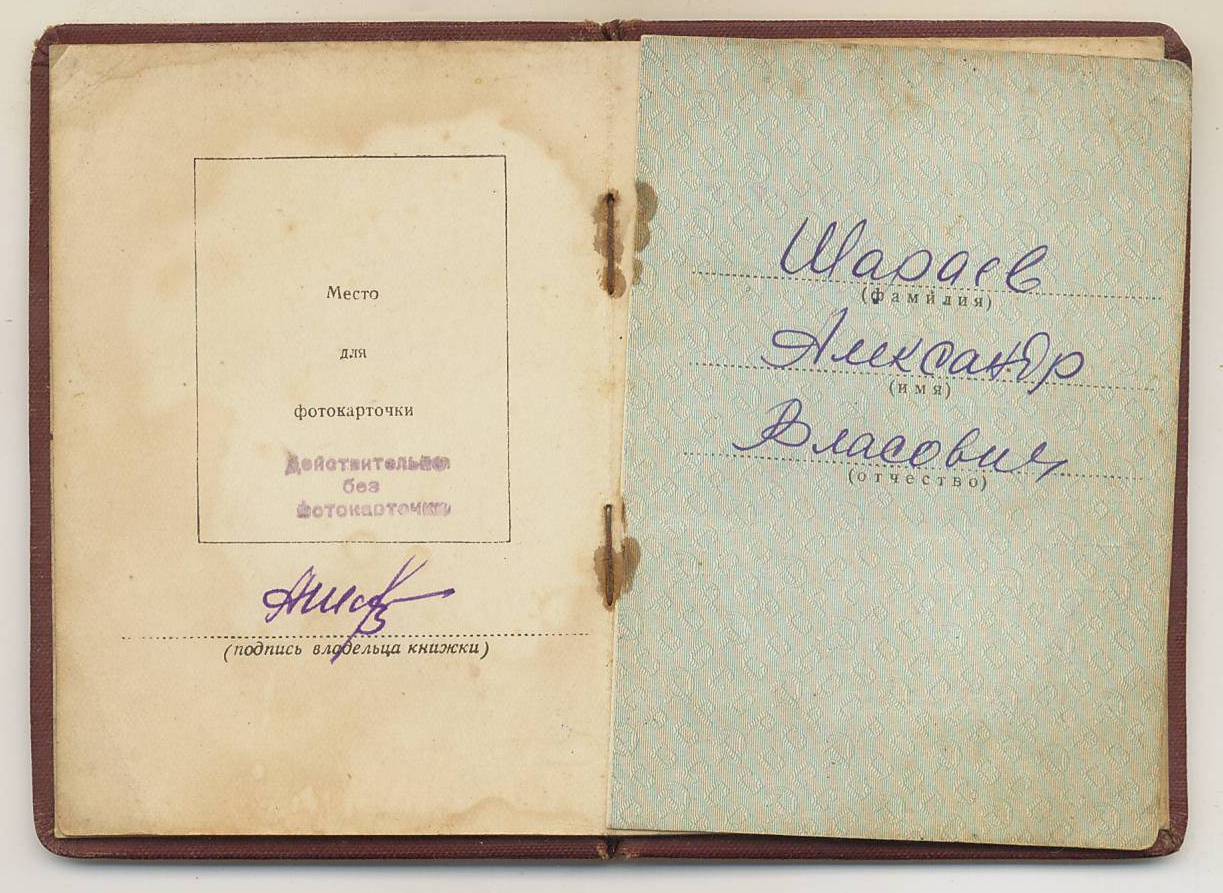 Место
для
фотокарточки
Действительно
без
фотокарточки
(подпись владельца книжки)
Шараев
(фамилия)
Александр
(имя)
Власович
(отчество)